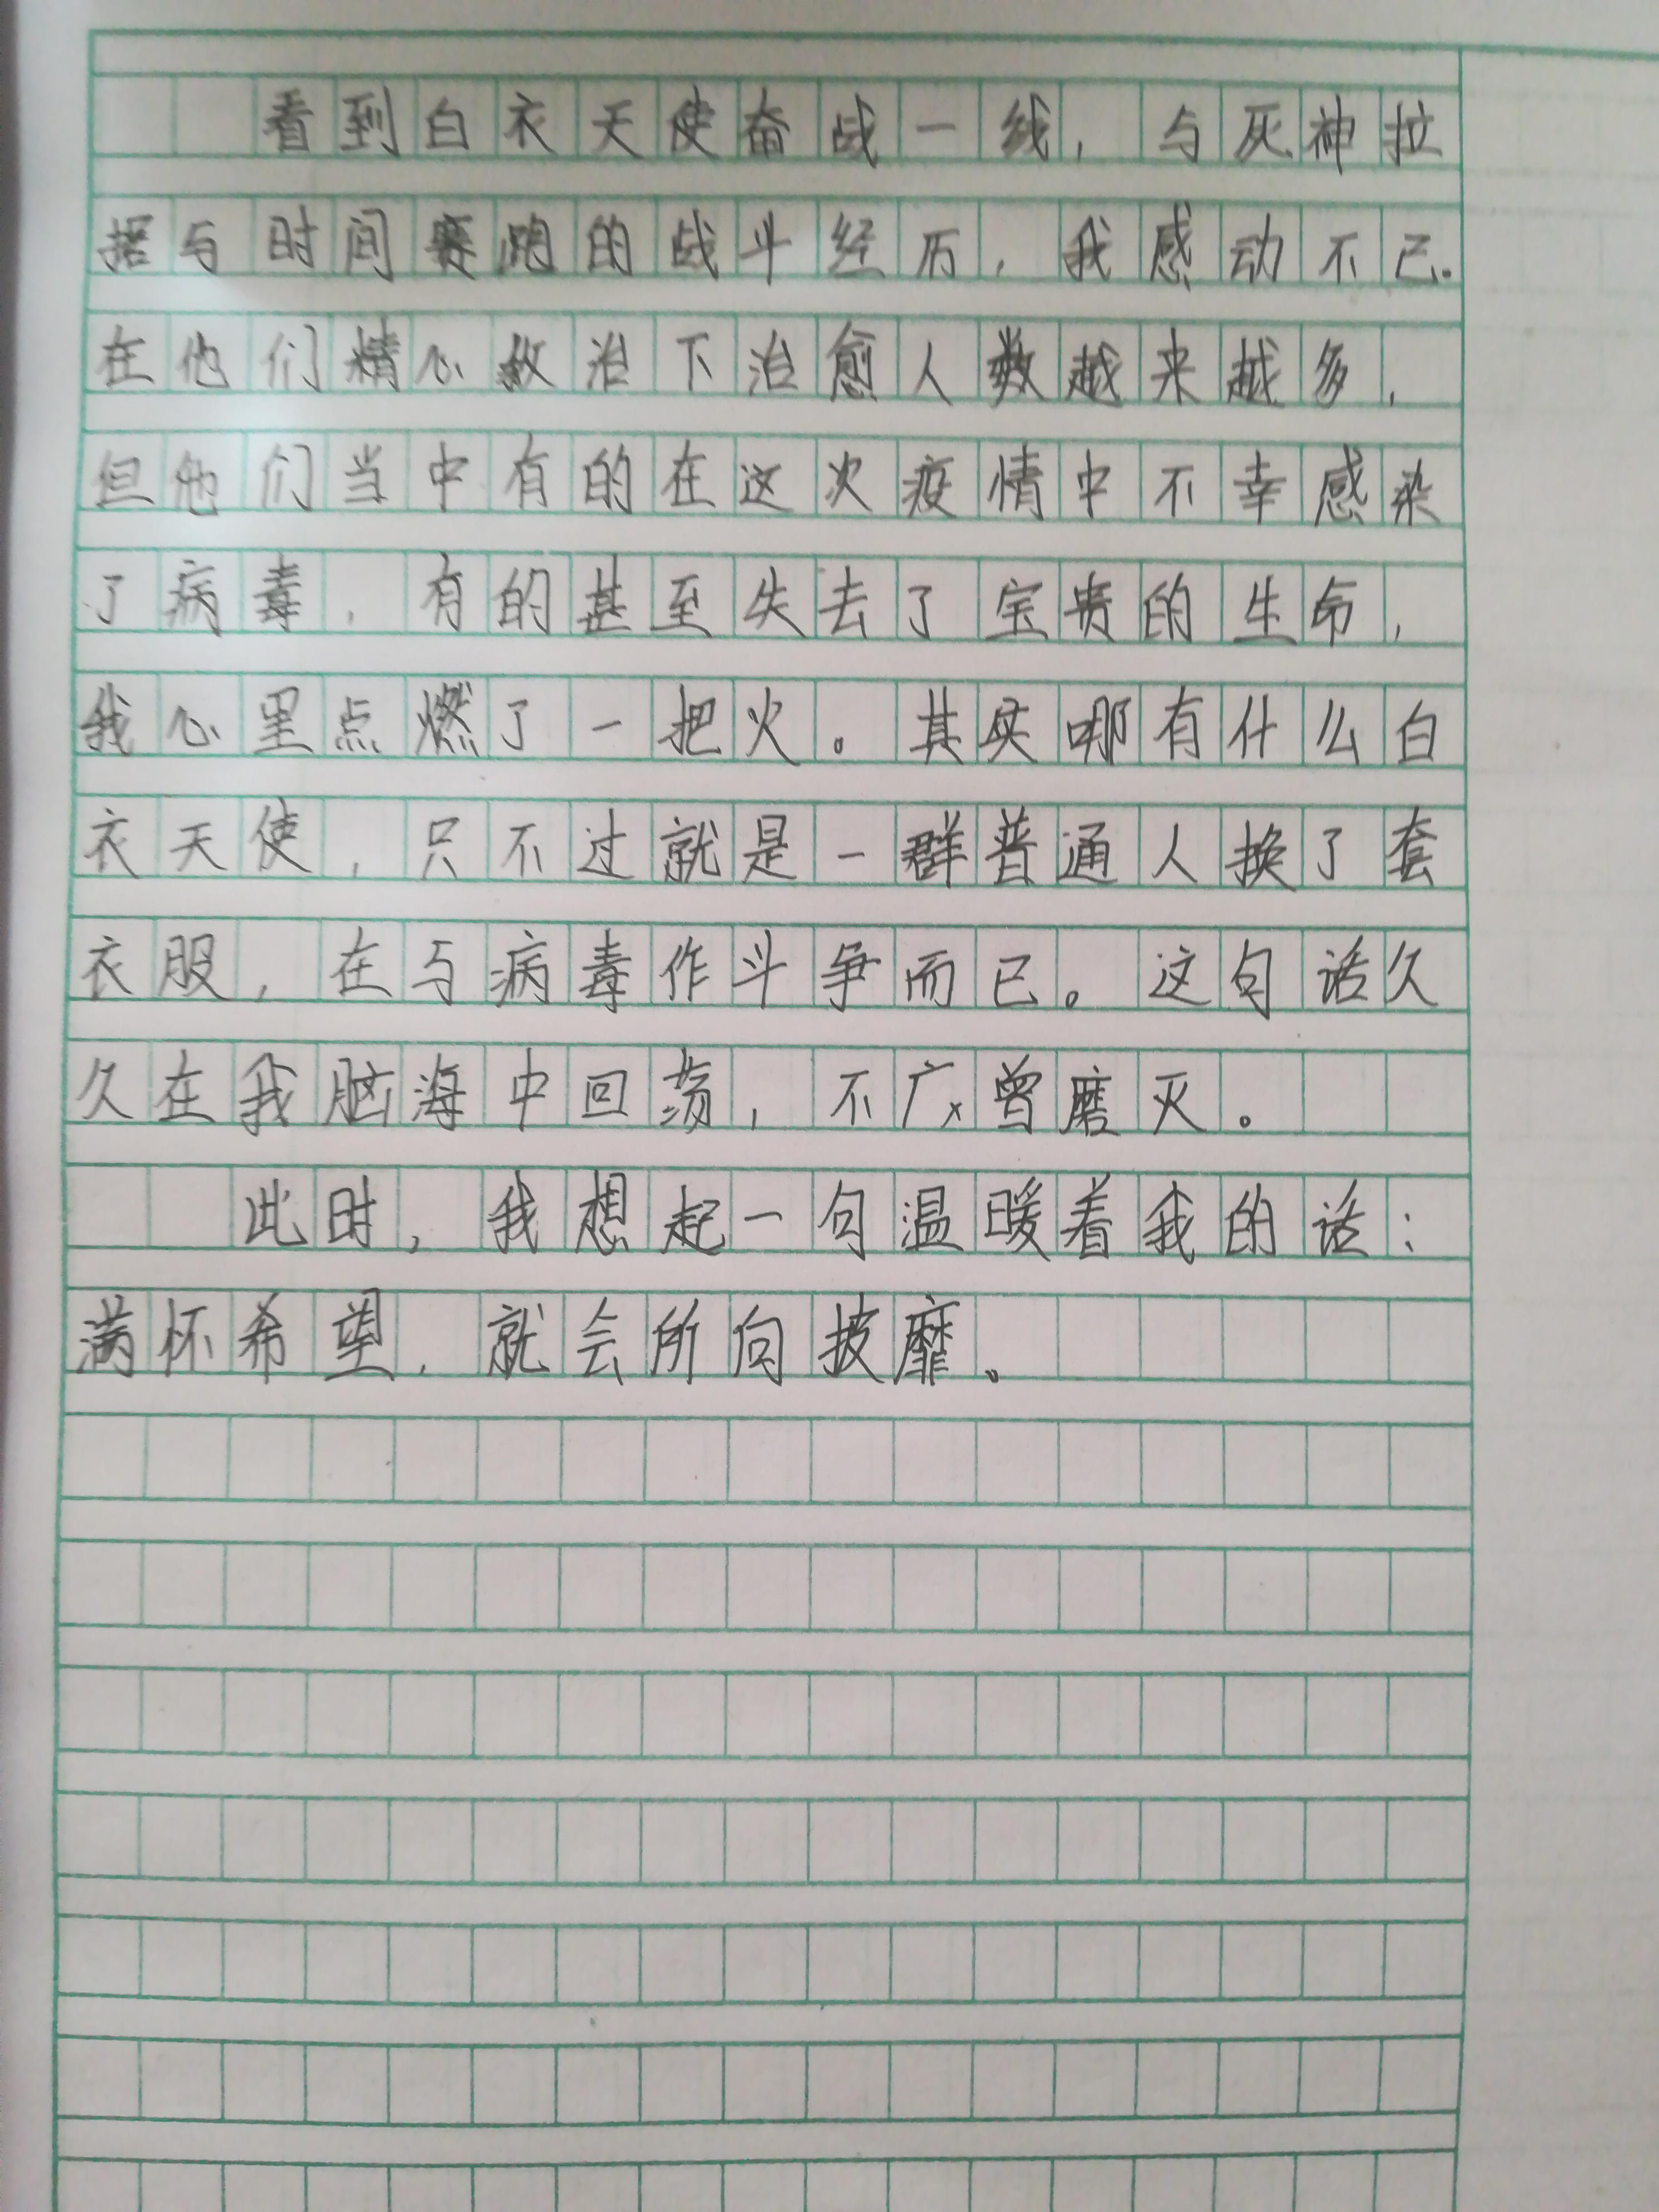 看到白衣天使奋战一线，与死神拉
据与时间赛跑的战斗经历，我感动不已。
在他们精心救治下治愈人数越来越多，
但他们当中有的在这次疫情中不幸感染
了病毒，有的甚至失去了宝贵的生命，
我心里点燃了一把火。其实哪有什么白
衣天使，只不过就是一群普通人换了套
衣服，在与病毒作斗争而已。这句话久
久在我脑海中回荡，不曾磨灭。
此时，我想起一句温暖着我的话：
满怀希望，就会所向披靡。